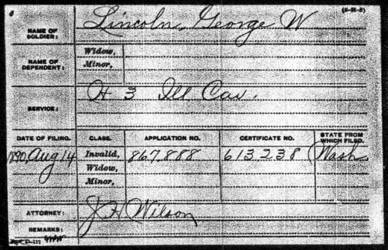 NAME OF SOLDIER: Lincoln, George W
NAME OF DEPENDENT: Widow,
Minor,
SERVICE: H 3 Ill Cav.
DATE OF FILING. CLASS. APPLICATION NO. CERTIFICATE NO. STATE FROM WHICH FILED.
1890, Aug 14 Invalid, 867,888 613,238 Wash
Widow,
Minor,
ATTORNEY: J H Wilson
REMARKS: